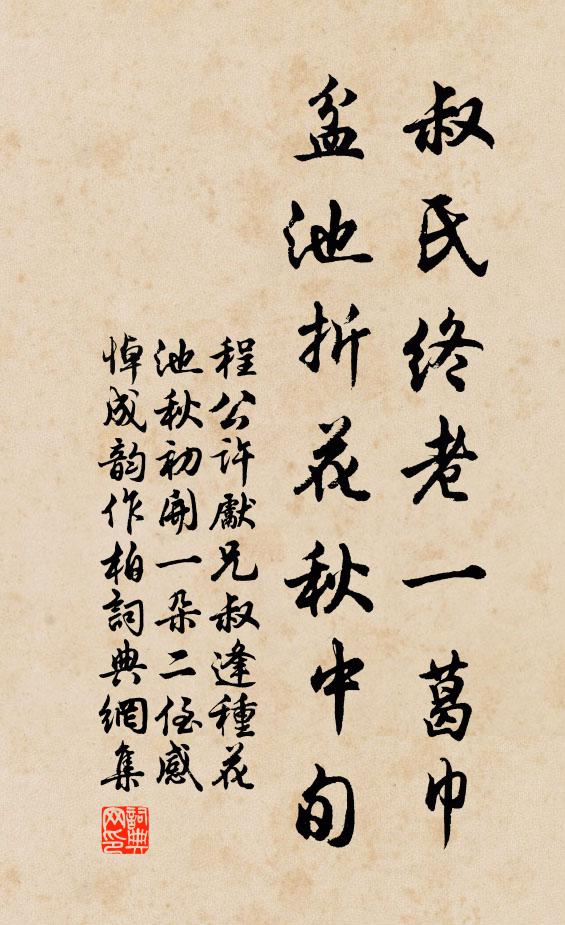 叔氏終老一葛巾
盆池折花秋中旬
程公許獻兄叔逢種花
池秋初開一朵二侄感
悼成韵作柏詞典網集
詞典网印